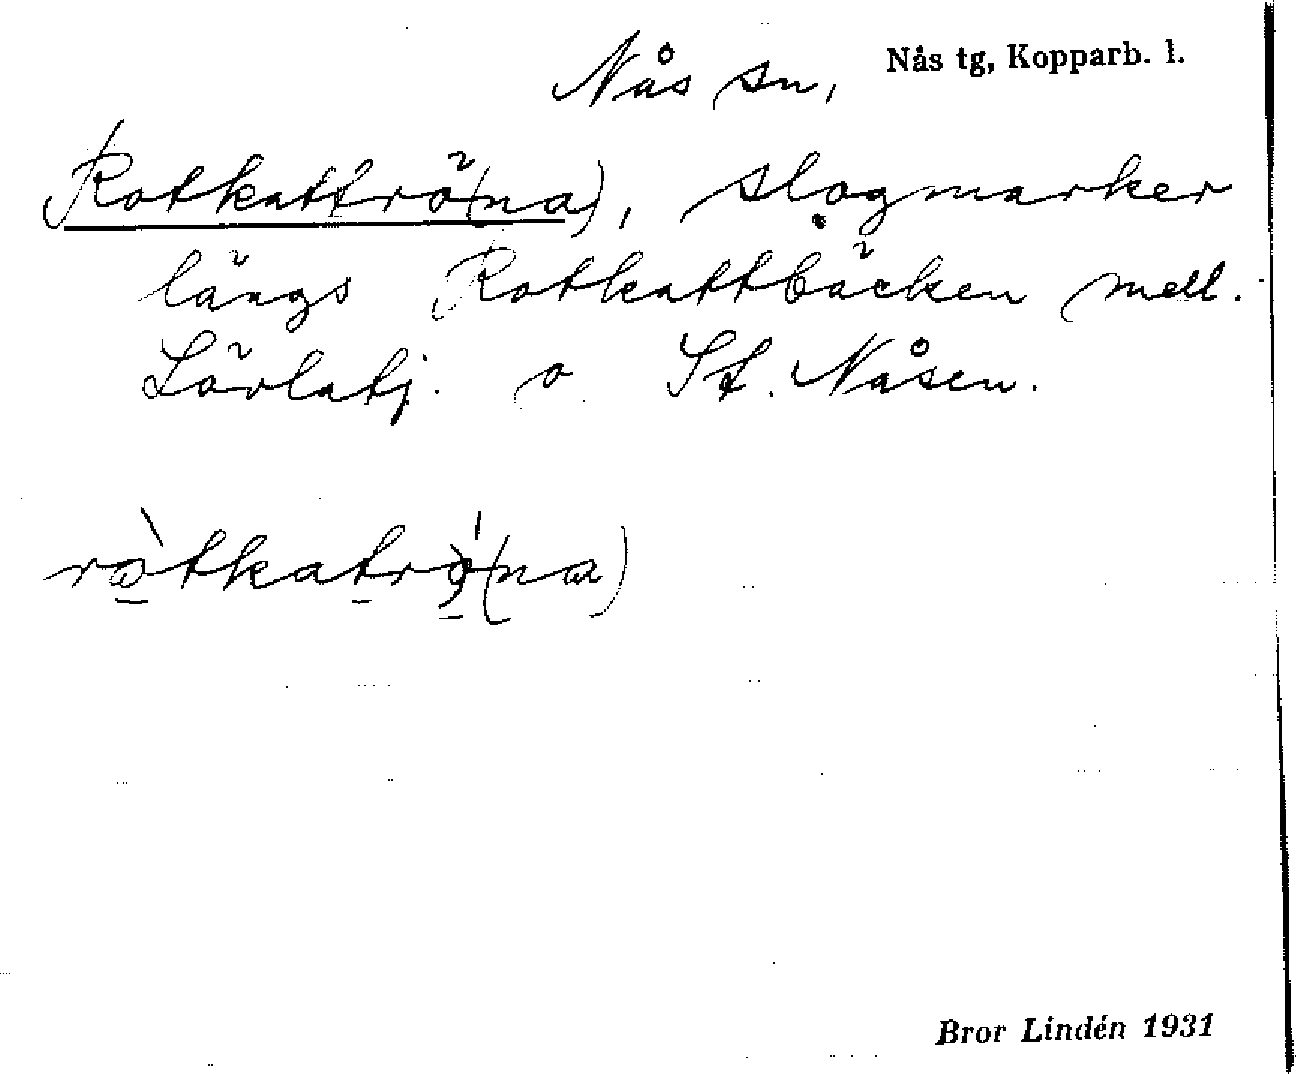 Nås sn, Nås tg, Kopparb. l.
Rotkattrö(na), slogmarker
längs Rotkattbäcken mell.
Lörlatj. o St. Nåsen.
ròtkatrö́(na)
Bror Lindén 1931